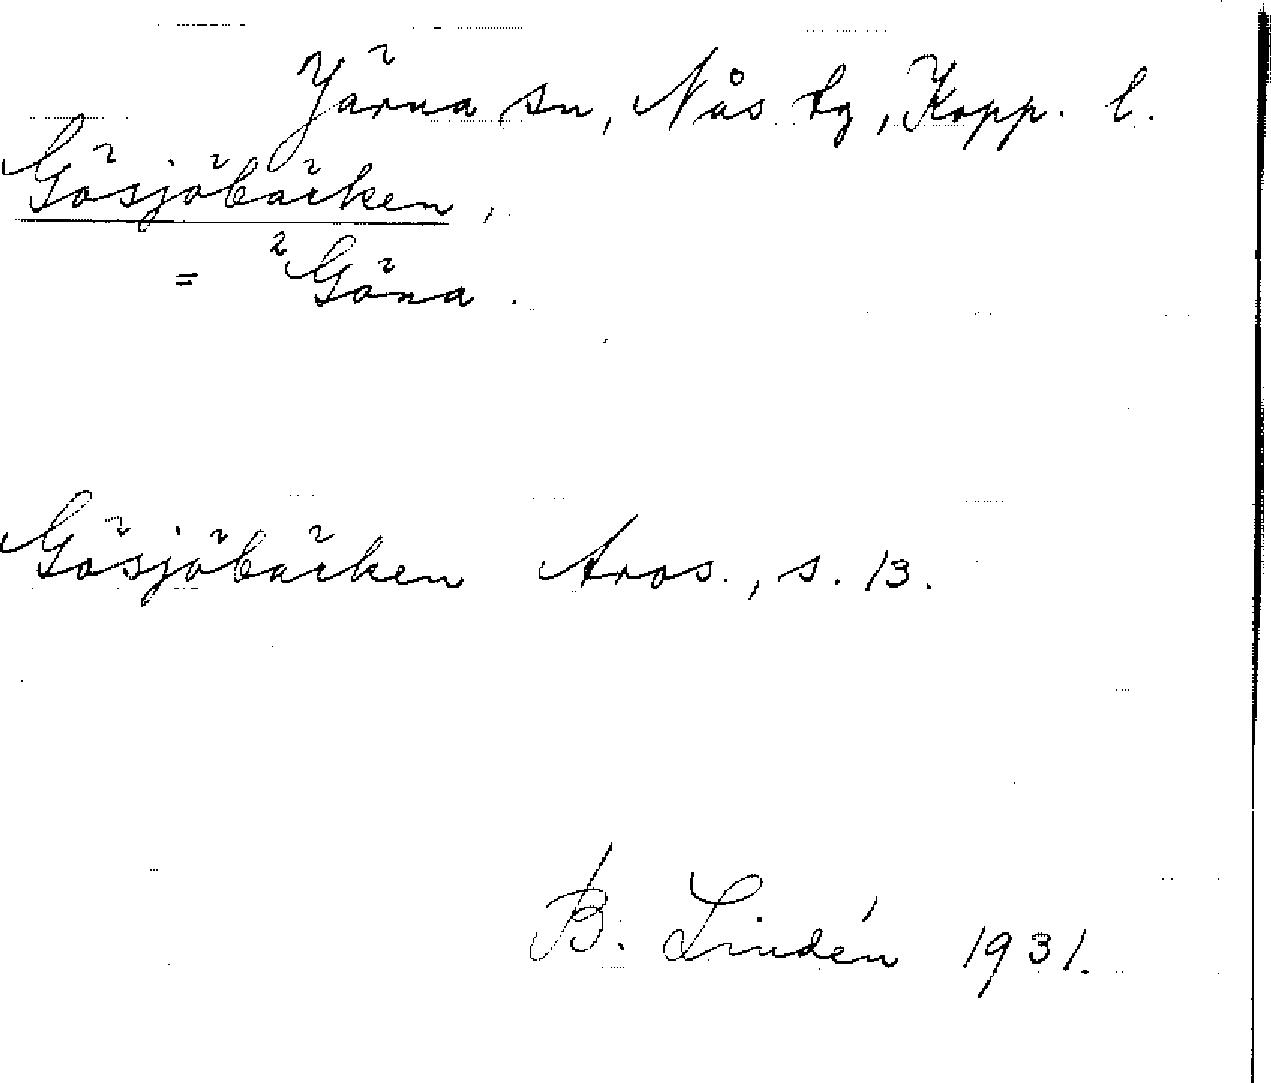 Järna sn, Nås tg, Kopp. l.
Gösjöbäcken,
= 2 Göna.
Gösjöbäcken Aros., s. 13.
B. Lindén 1931.